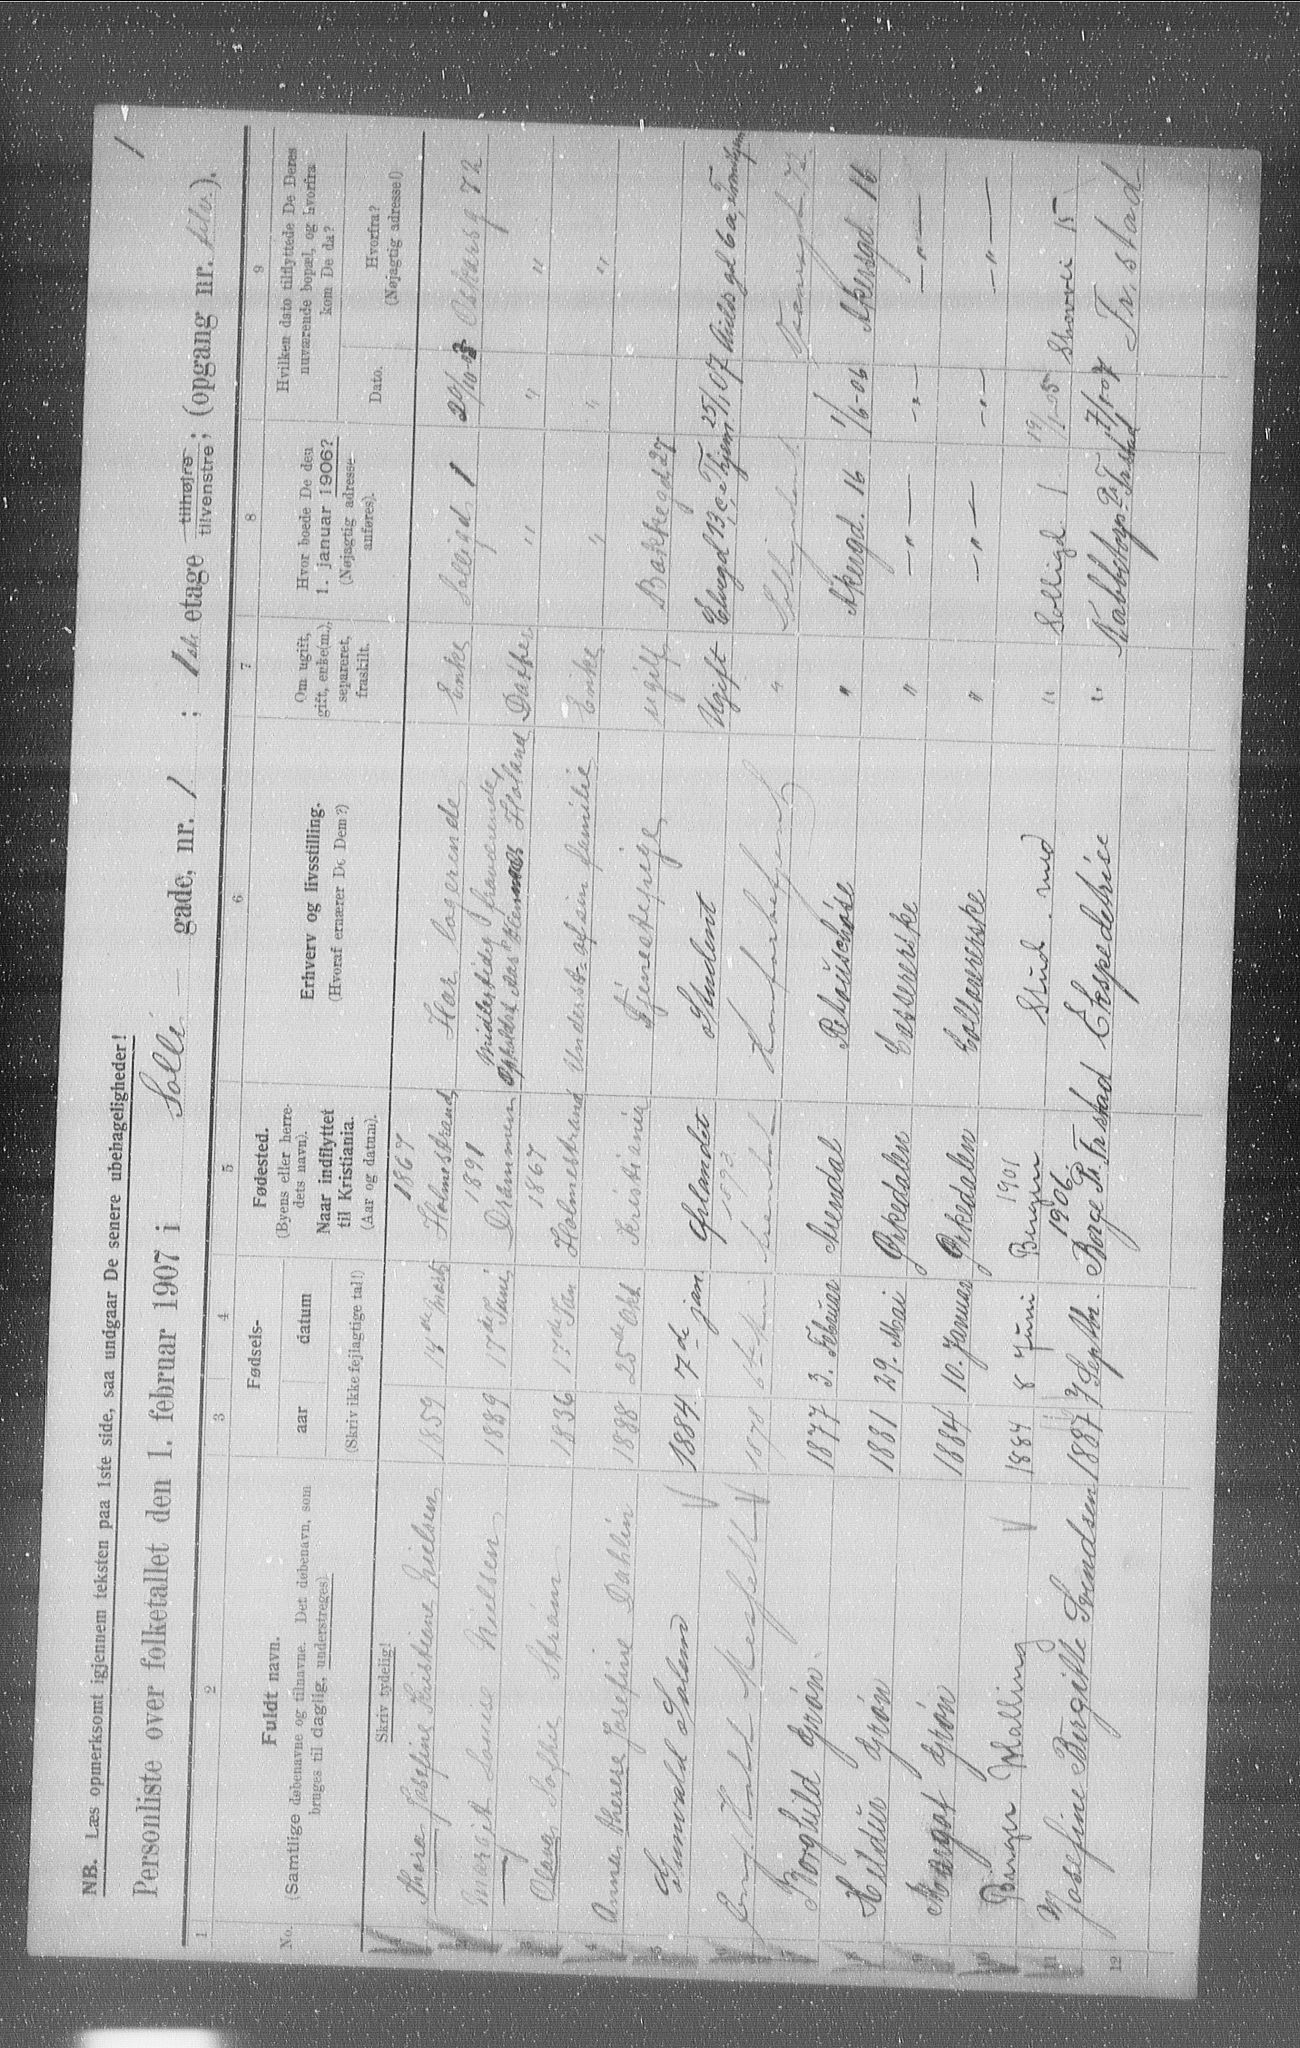 NB. Læs opmerksomt igjennem teksten paa 1ste side, saa undgaar De senere ubehageligheder!
1
Personliste over folketallet den 1. februar 1907 i Solli gade, nr. 1 ; 1ste etage tilhøjre tilvenstre; (opgang nr. ).
1 2 3 4 5 6 7 8 9
No.
Fuldt navn.
(Samtlige døbenavne og tilnavne. Det døbenavn, som
bruges til daglig, understreges).
Fødsels-
aar datum
Fødested.
(Byens eller herre-
dets navn).
Naar indflyttet
til Kristiania.
(Aar og datum).
Erhverv og livsstilling.
(Hvoraf ernærer De Dem?)
Om ugift,
gift, enke(m.),
separeret,
fraskilt.
Hvor boede De den
1. januar 1906?
(Nøjagtig adresse
anføres).
Hvilken dato tilflyttede De Deres
nuværende bopæl, og hvorfra
kom De da?
Dato.
Hvorfra?
(Nøjagtig adresse!)
Skriv tydelig!
(Skriv ikke fejlagtige tal!)
1 Thora Josefine Kristiane Nielsen 1859 14de Marts 1867 Holmestrand Har logerende Enke Solligd 1 Oskarsg 72
2 Margit Louise Nielsen 1889 17de Juni 1891 Drammen Midlertidig fraværende, Datter " " "
3 Olava Sofhie Strøm 1836 17de Jan 1867 Holmestrand Underst. af sin familie Enke " " "
4 Anna Therese Josefine Dahlin 1888 25de Okt Kristiania Tjenestepige ugift Bakkegd 27
5 Gunvald 1884 7de jan. Ørlandet Student Ugift 25/1 07
6 1878 1893 "
7 Borghild Grøn 1877 3. Februar Arendal " Akersgd. 16 1/6-06 Akersgd. 16
8 Hildur Grøn 1881 29. Mai Orkedalen Casserérske " —"— —"— —"—
9 Margot Grøn 1884 10. Januar Orkedalen " —"— —"— —"—
10 Birger Malling 1884 8 Juni 1901 Bergen Stud. med " Solligd. 1 Skovvei 15
11 Josefine Birgitte Svendsen 1887 Septbr. 1906. Borge Pr. Fr.stad Ekspedetrice " Fr. stad
12